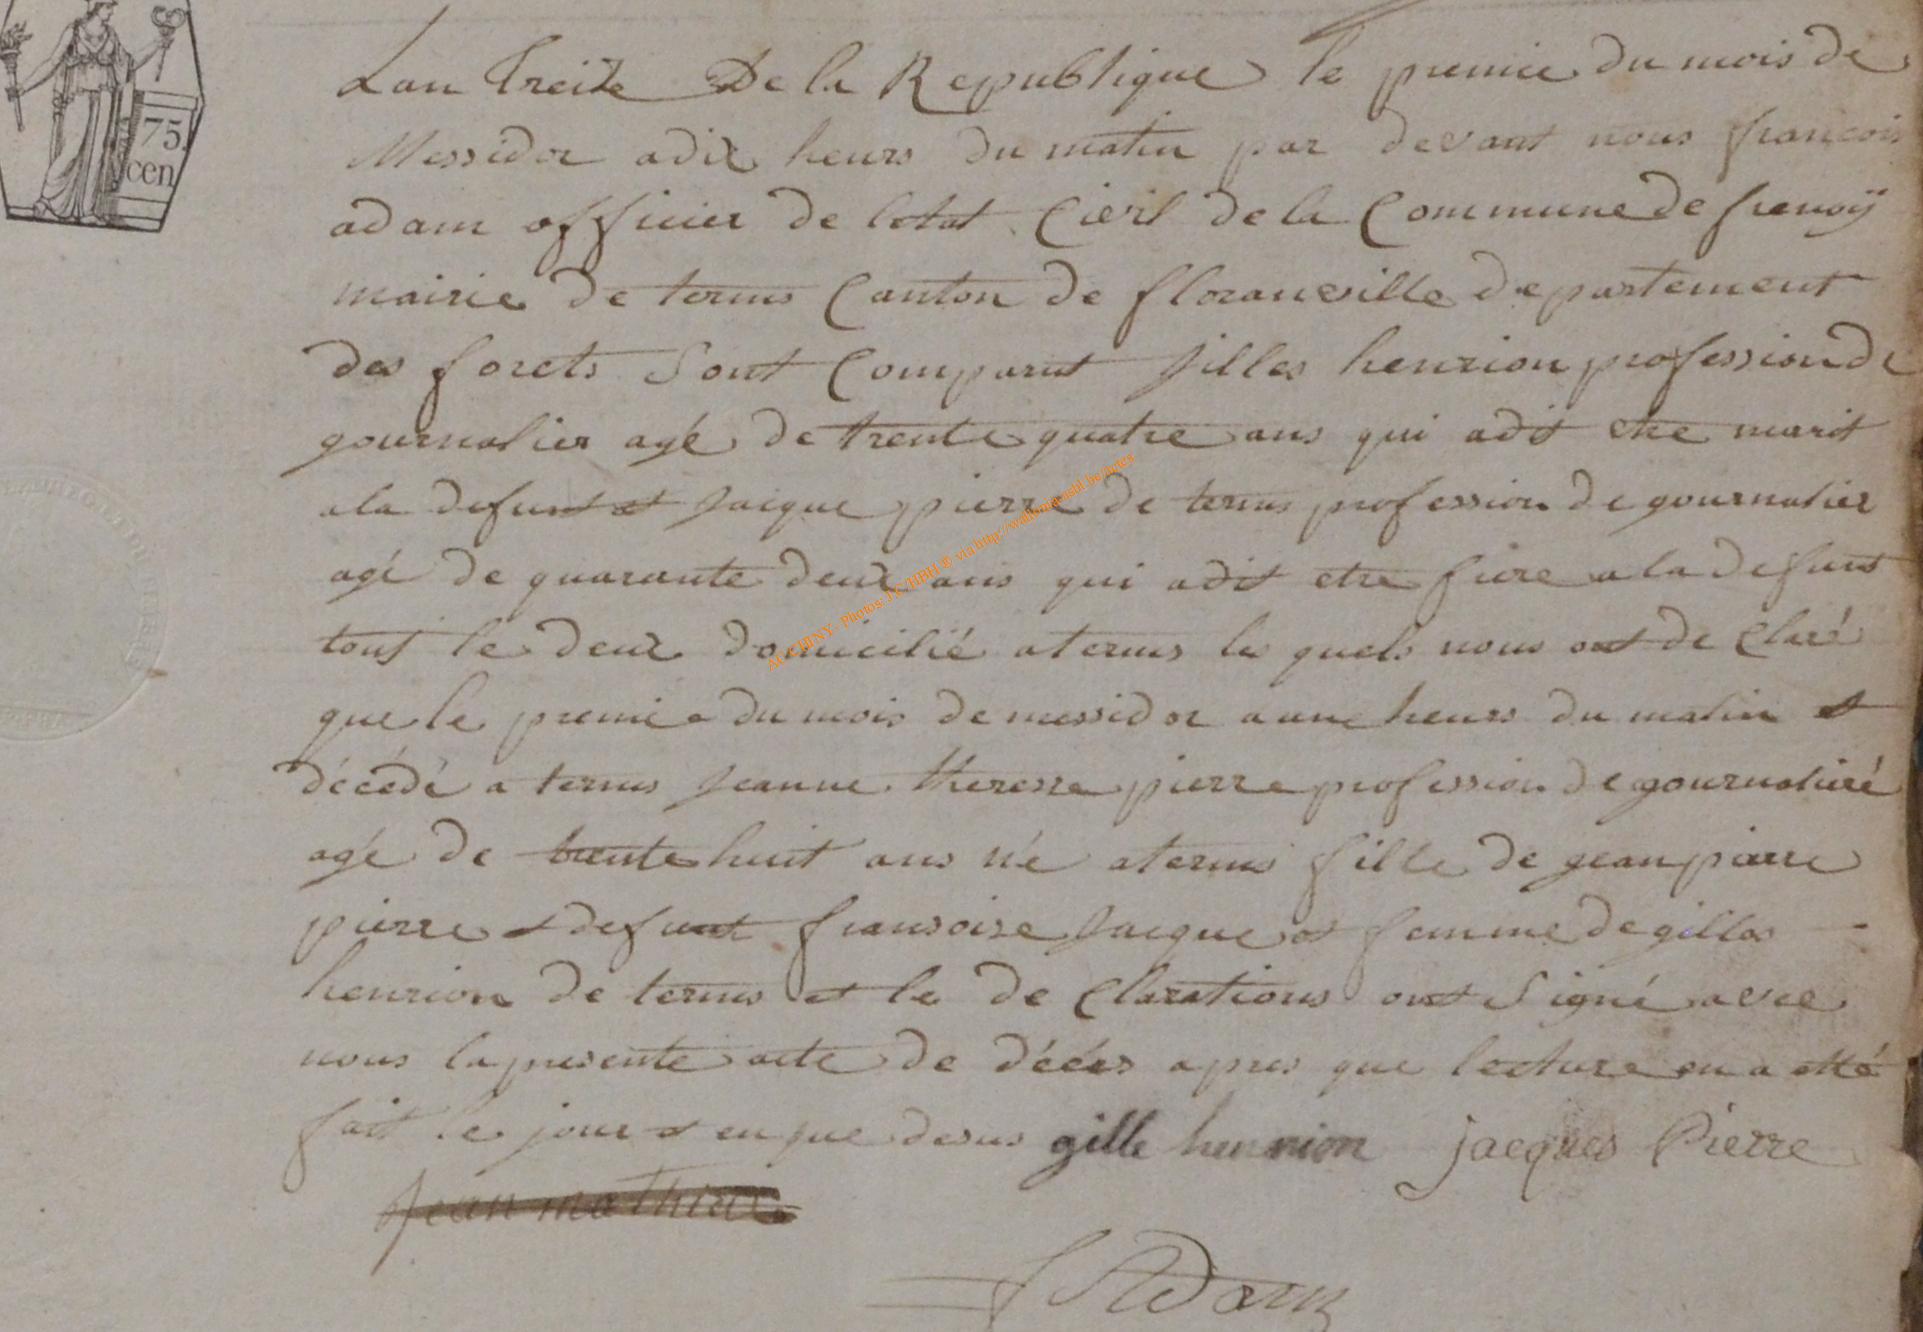 75.
cen
Lan Treize De la Republique le premie du mois de
Messidor adix heurs du matin par devant nous francois
adam officier de letat Civil de la Commune de frenoÿ
mairie de termes Canton de floranville departement
des forets Sont Comparut Jilles henrion profession de
gournalier agé de trente quatre ans qui adit etre marit
ala defunt et Jacque pierre de termes profession de gournalier
agé de quarante deux ans qui adit etre frere a la defunt
tous le deux domicilié a termes les quels nous ont de Claré
que le premie du mois de messidor a une heurs du matin et
décédé a termes Jeanne theresse pierre profession de gournaliere
agé de trente huit ans né a termes fille de jean pierre
pierre et defunt fransoise Jacque et femme de gilles
henrion de termes et les de Clarations ont Signé avec
nous la presente acte de décés apres que lecture en a etté
fait le jour et en que desus gille henrion jacques Pierre
Jean mathieu
f Adam
ACCHINY - Photos: JC HBH © via http://wallonia-asbl.be/actes